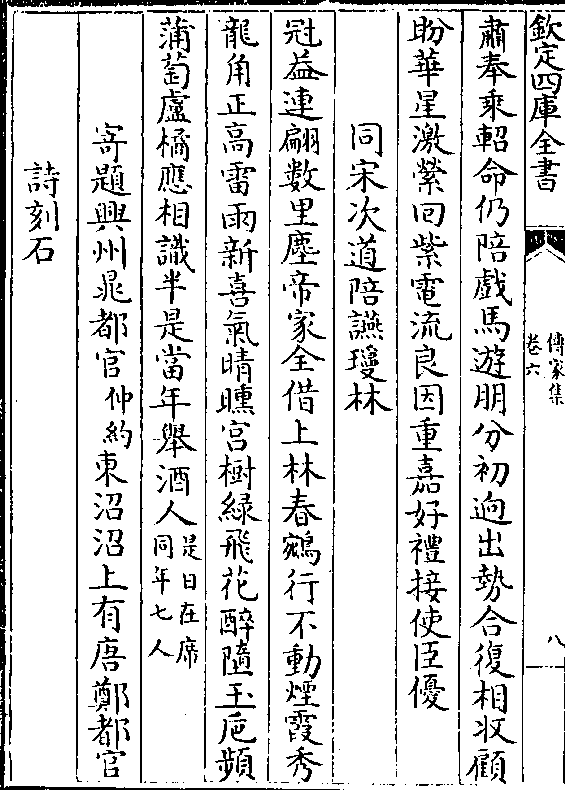 欽定四庫全書
傳家集
卷六
八
肅奉乘軺命仍陪戲馬遊朋分初逈出勢合復相收顧
盼華星激縈回紫電流良因重嘉好禮接使臣優
同宋次道陪讌瓊林
冠葢連翩數里塵帝家全借上林春鵷行不動煙霞秀
龍角正高雷雨新喜氣晴曛宫樹緑飛花醉隨玉巵頻
蒲萄盧橘應相識半是當年舉酒人是日在席同年七人
寄題興州晁都官仲約東沼沼上有唐鄭都官
詩刻石